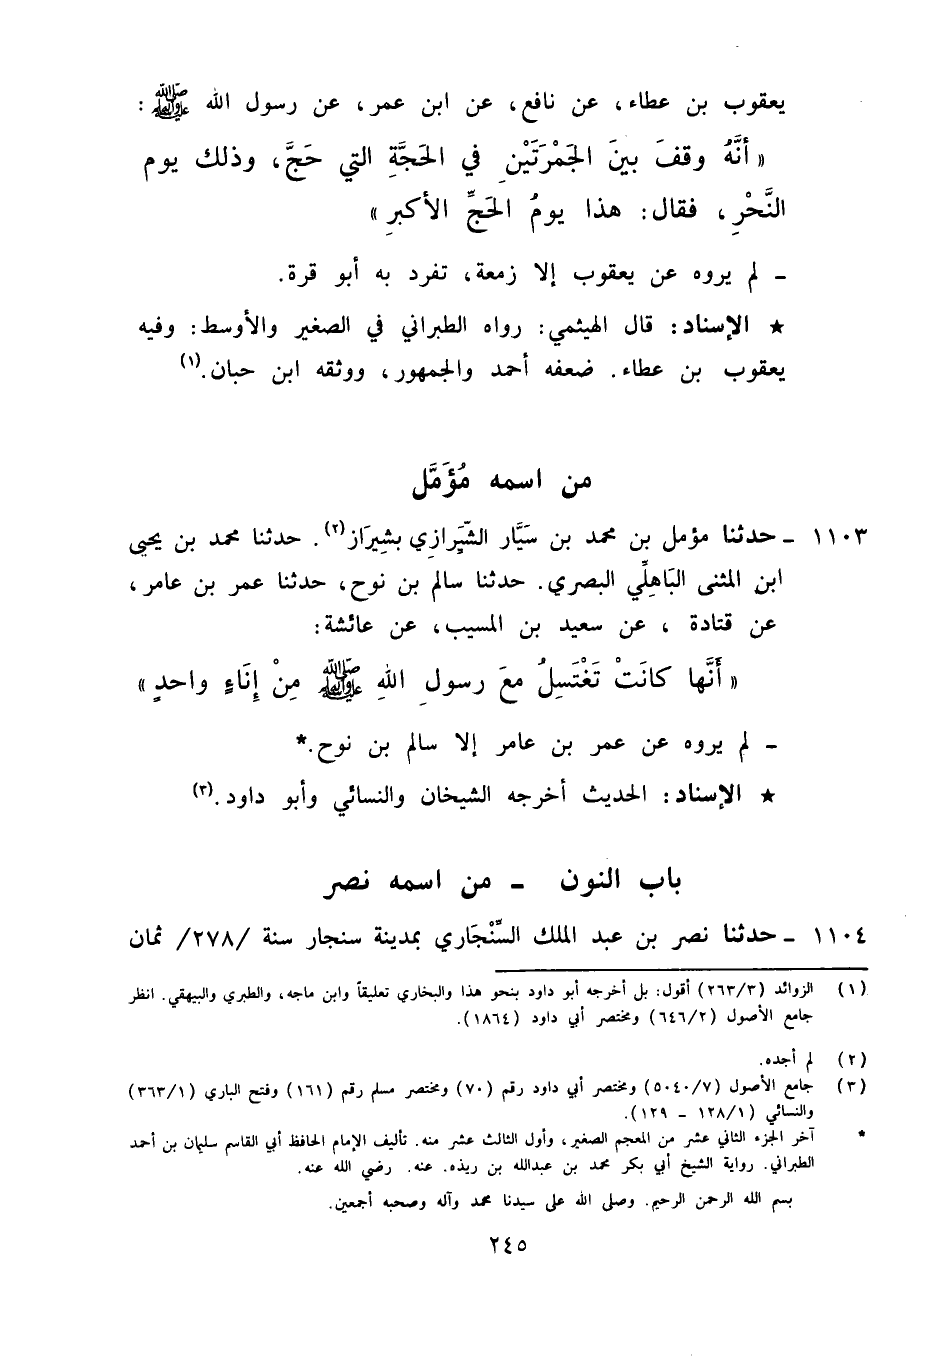 يعقوب بن عطاء، عن نافع، عن ابن عمر، عن رسول الله ﷺ :
« أَنَّهُ وقفَ بينَ الجَمْرَتَيْنِ في الحَجَّةِ التي حَجَّ، وذلك يوم
النَّحْرِ، فقال: هذا يومُ الحَجِّ الأكبرِ »
- لم يروه عن يعقوب إلا زمعة، تفرد به أبو قرة.
★ الإسناد: قال الهيثمي: رواه الطبراني في الصغير والأوسط: وفيه
يعقوب بن عطاء. ضعفه أحمد والجمهور، ووثقه ابن حبان.(١)
من اسمه مُؤَمَّل
١١٠٣ - حدثنا مؤمل بن محمد بن سَيَّار الشِّيرازي بشِيرَاز(٢). حدثنا محمد بن يحيى
ابن المثنى البَاهِلِّي البصري. حدثنا سالم بن نوح، حدثنا عمر بن عامر،
عن قتادة ، عن سعيد بن المسيب، عن عائشة:
« أَنَّها كانَتْ تَغْتَسِلُ معَ رسولِ اللهِ ﷺ مِنْ إِنَاءٍ واحدٍ »
- لم يروه عن عمر بن عامر إلا سالم بن نوح.*
★ الإسناد: الحديث أخرجه الشيخان والنسائي وأبو داود.(٣)
باب النون - من اسمه نصر
١١٠٤ - حدثنا نصر بن عبد الملك السِّنْجَاري بمدينة سنجار سنة /٢٧٨/ ثمان
(١) الزوائد (٢٦٣/٣) أقول: بل أخرجه أبو داود بنحو هذا والبخاري تعليقاً وابن ماجه، والطبري والبيهقي. انظر
جامع الأصول (٦٤٦/٢) ومختصر أبي داود (١٨٦٤).
(٢) لم أجده.
(٣) جامع الأصول (٥٠٤٠/٧) ومختصر أبي داود رقم (٧٠) ومختصر مسلم رقم (١٦١) وفتح الباري (٣٦٣/١)
والنسائي (١٢٨/١ - ١٢٩).
* آخر الجزء الثاني عشر من المعجم الصغير، وأول الثالث عشر منه. تأليف الإمام الحافظ أبي القاسم سليمان بن أحمد
الطبراني. رواية الشيخ أبي بكر محمد بن عبدالله بن ريذه. عنه. رضي الله عنه.
بسم الله الرحمن الرحيم. وصلى الله على سيدنا محمد وآله وصحبه أجمعين.
٢٤٥